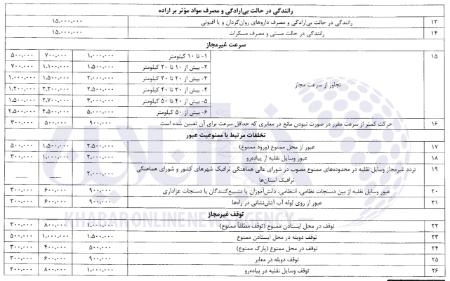 رانندگی در حالت بی‌ارادگی و مصرف مواد مؤثر بر اراده
۱۳ رانندگی در حالت بی‌ارادگی و مصرف داروهای روان‌گردان و یا افیونی ۱۵,۰۰۰,۰۰۰
۱۴ رانندگی در حالت مستی و مصرف مسکرات ۱۵,۰۰۰,۰۰۰
سرعت غیرمجاز
۱۵ تجاوز از سرعت مجاز
۱- تا ۱۰ کیلومتر ۱,۰۰۰,۰۰۰ ۷۰۰,۰۰۰ ۵۰۰,۰۰۰
۲- بیش از ۱۰ تا ۲۰ کیلومتر ۱,۵۰۰,۰۰۰ ۱,۱۰۰,۰۰۰ ۷۰۰,۰۰۰
۳- بیش از ۲۰ تا ۳۰ کیلومتر ۲,۰۰۰,۰۰۰ ۱,۵۰۰,۰۰۰ ۱,۰۰۰,۰۰۰
۴- بیش از ۳۰ تا ۴۰ کیلومتر
۵- بیش از ۴۰ تا ۵۰ کیلومتر
۶- بیش از ۵۰ کیلومتر
۱۶ حرکت کمتر از سرعت مقرر در صورت نبودن مانع در معابری که حداقل سرعت برای آن تعیین شده است ۹۰۰,۰۰۰ ۵۰۰,۰۰۰ ۳۰۰,۰۰۰
تخلفات مرتبط با ممنوعیت عبور
۱۷ عبور از محل ممنوع (ورود ممنوع) ۲,۵۰۰,۰۰۰ ۱,۵۰۰,۰۰۰ ۵۰۰,۰۰۰
۱۸ عبور وسایل نقلیه از پیاده‌رو ۲,۰۰۰,۰۰۰ ۱,۰۰۰,۰۰۰ ۳۰۰,۰۰۰
۱۹ تردد غیرمجاز وسایل نقلیه در محدوده‌های ممنوع مصوب در شورای عالی هماهنگی ترافیک شهرهای کشور و شورای هماهنگی
ترافیک استان‌ها ۲,۰۰۰,۰۰۰
۲۰ عبور وسایل نقلیه از بین دستجات نظامی، انتظامی، دانش‌آموزان یا تشییع‌کنندگان یا دستجات عزاداری ۹۰۰,۰۰۰ ۶۰۰,۰۰۰ ۳۰۰,۰۰۰
۲۱ عبور از روی لوله آب آتش‌نشانی در راه‌ها ۹۰۰,۰۰۰ ۶۰۰,۰۰۰ ۳۰۰,۰۰۰
توقف غیرمجاز
۲۲ توقف در محل ایستادن ممنوع (توقف مطلقاً ممنوع) ۱,۰۰۰,۰۰۰ ۸۰۰,۰۰۰
۲۳ توقف دوبله در محل ایستادن ممنوع ۱,۵۰۰,۰۰۰ ۱,۰۰۰,۰۰۰ ۵۰۰,۰۰۰
۲۴ توقف در محل ممنوع (پارک ممنوع) ۵۰۰,۰۰۰ ۴۰۰,۰۰۰ ۳۰۰,۰۰۰
۲۵ توقف دوبله در معابر ۹۰۰,۰۰۰ ۶۰۰,۰۰۰ ۳۰۰,۰۰۰
۲۶ توقف وسایل نقلیه در پیاده‌رو ۱,۰۰۰,۰۰۰ ۸۰۰,۰۰۰
KHABARONLINE NEWS AGENCY